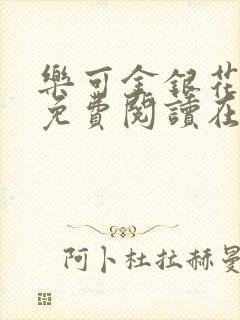 樂可金銀花
免費閱讀在
阿卜杜拉赫曼